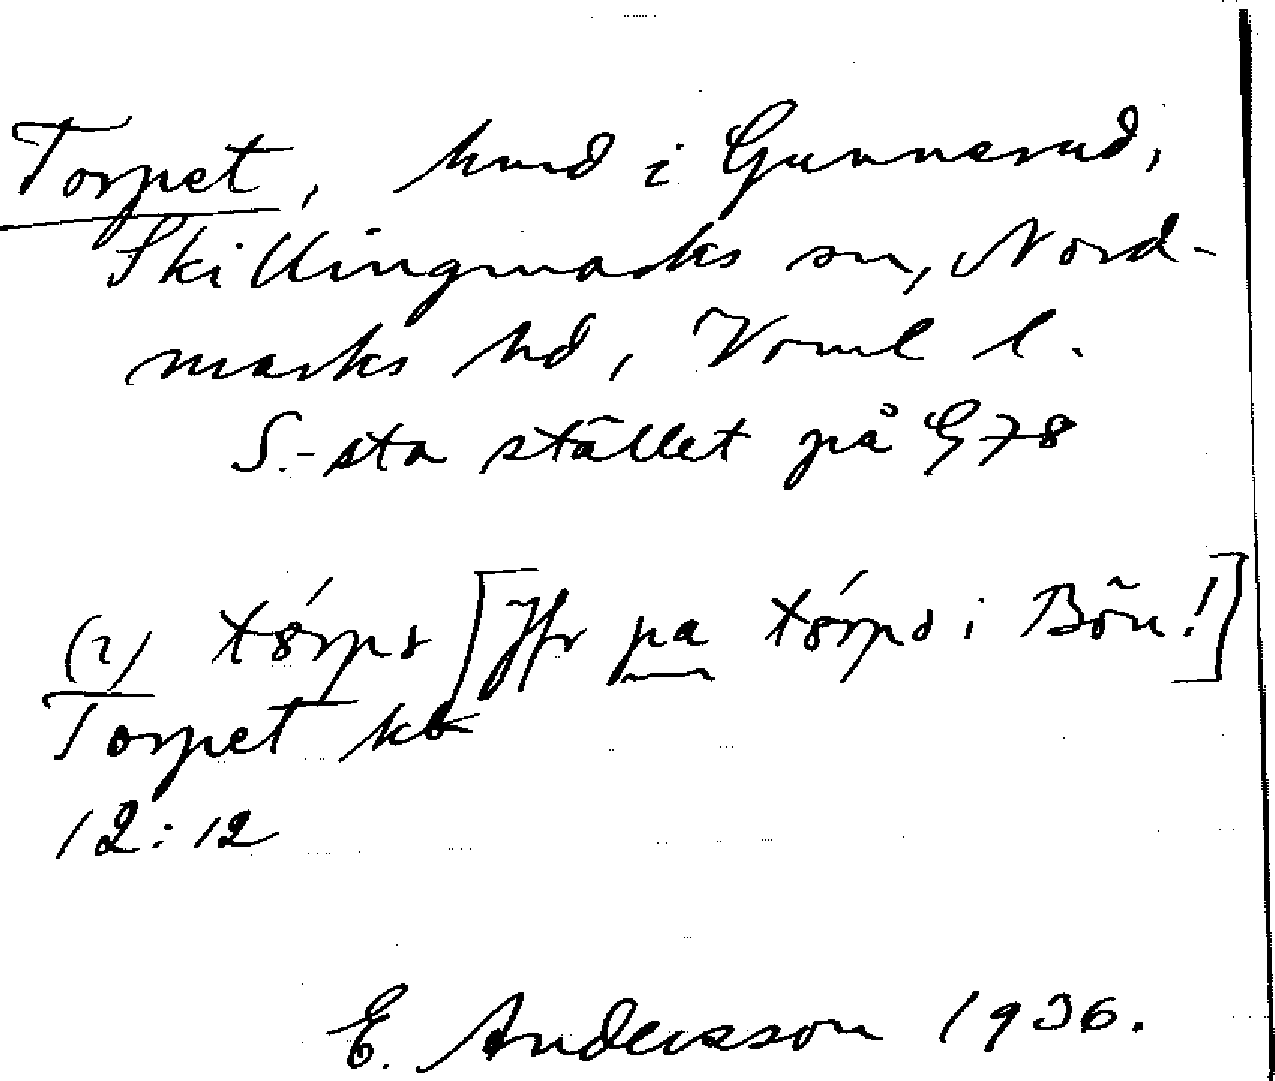 Torpet, hmd i Gunnerud,
Skillingmarks sn, Nord-
marks hd, Vrml l.
S.-sta stället på G 78
(2) [Jfr pa i Bön!]
Torpet kb
12:12
E. Andersson 1936.